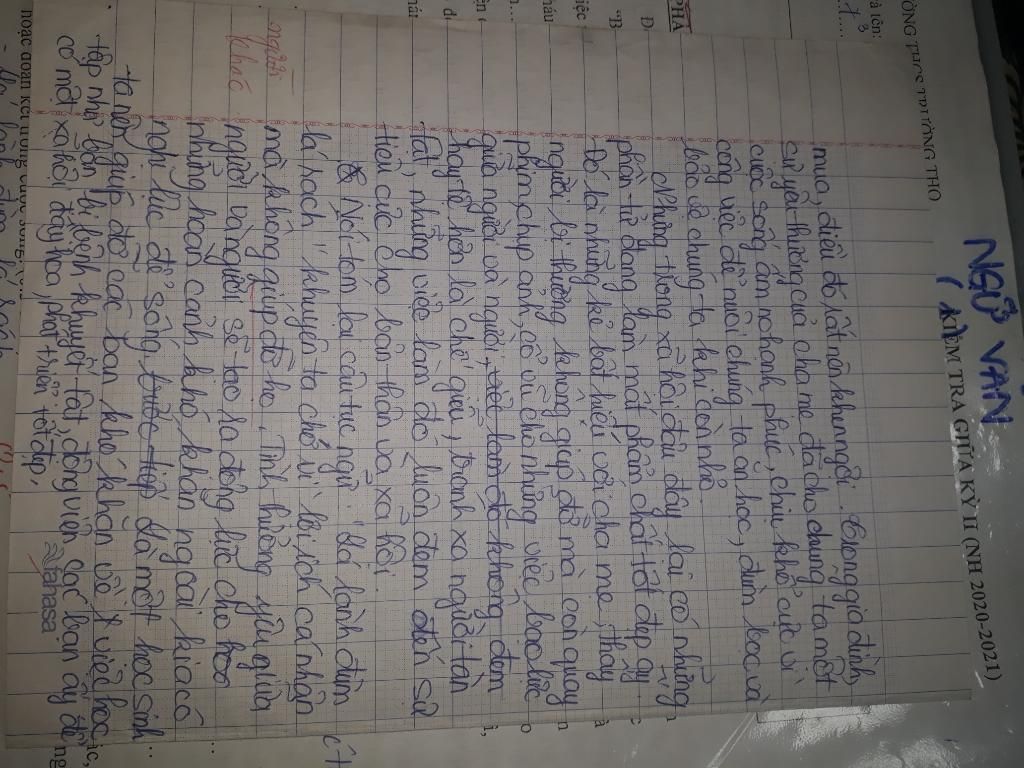 ƯỜNG THCS TRƯỜNG THỌ
NGỮ VĂN
(KIỂM TRA GIỮA KỲ II (NH 2020-2021)
PHẦ
mua, điều đó, rất nên khen ngợi. Trong gia đình
cử yêu thương của cha mẹ đã cho chúng ta một
cuộc sống ấm no hạnh phúc, chịu khổ cực vì
công việc để nuôi chúng ta ăn học, đùm bọc và
bảo vệ chúng ta khi còn nhỏ.
Nhưng trong xã hội đâu đây lại có những
phần tử đang làm mất phẩm chất tốt đẹp ấy
Đó là những kẻ bất hiếu với cha mẹ, thấy
người bị thương không giúp đỡ mà còn quay
phim, chụp ảnh, cổ vũ cho những việc bạo lực
giữa người và người, việc làm đó không đem
hay tệ hơn là chế giễu, tránh xa người tàn
tật, những việc làm đó luôn đem đến sự
tiêu cực cho bản thân và xã hội.
Nói tóm lại câu tục ngữ "lá lành đùm
lá rách" khuyên ta chớ vì lợi ích cá nhân
mà không giúp đỡ họ. Tình thương yêu giữa
người và người sẽ tạo ra động lực cho họ
người
khó
những hoàn cảnh khó khăn ngoài kia có
nghị lực để sống tiếp. Là một học sinh
ta nên giúp đỡ các bạn khó khăn về việc học
tập như bạn bị bệnh khuyết tật, động viên các bạn ấy để
có một xã hội đầy hoa, phát triển tốt đẹp.
tanasa
hoặc đoàn kết trong cuộc sống